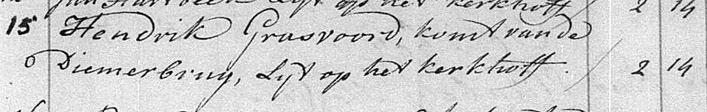 Jan Hartbeek Lyt op het kerkhoff / 2 14
15 Hendrik Grasvoord, komt van de
Diemerbrug, Lyt op het kerkhoff. / 2 14